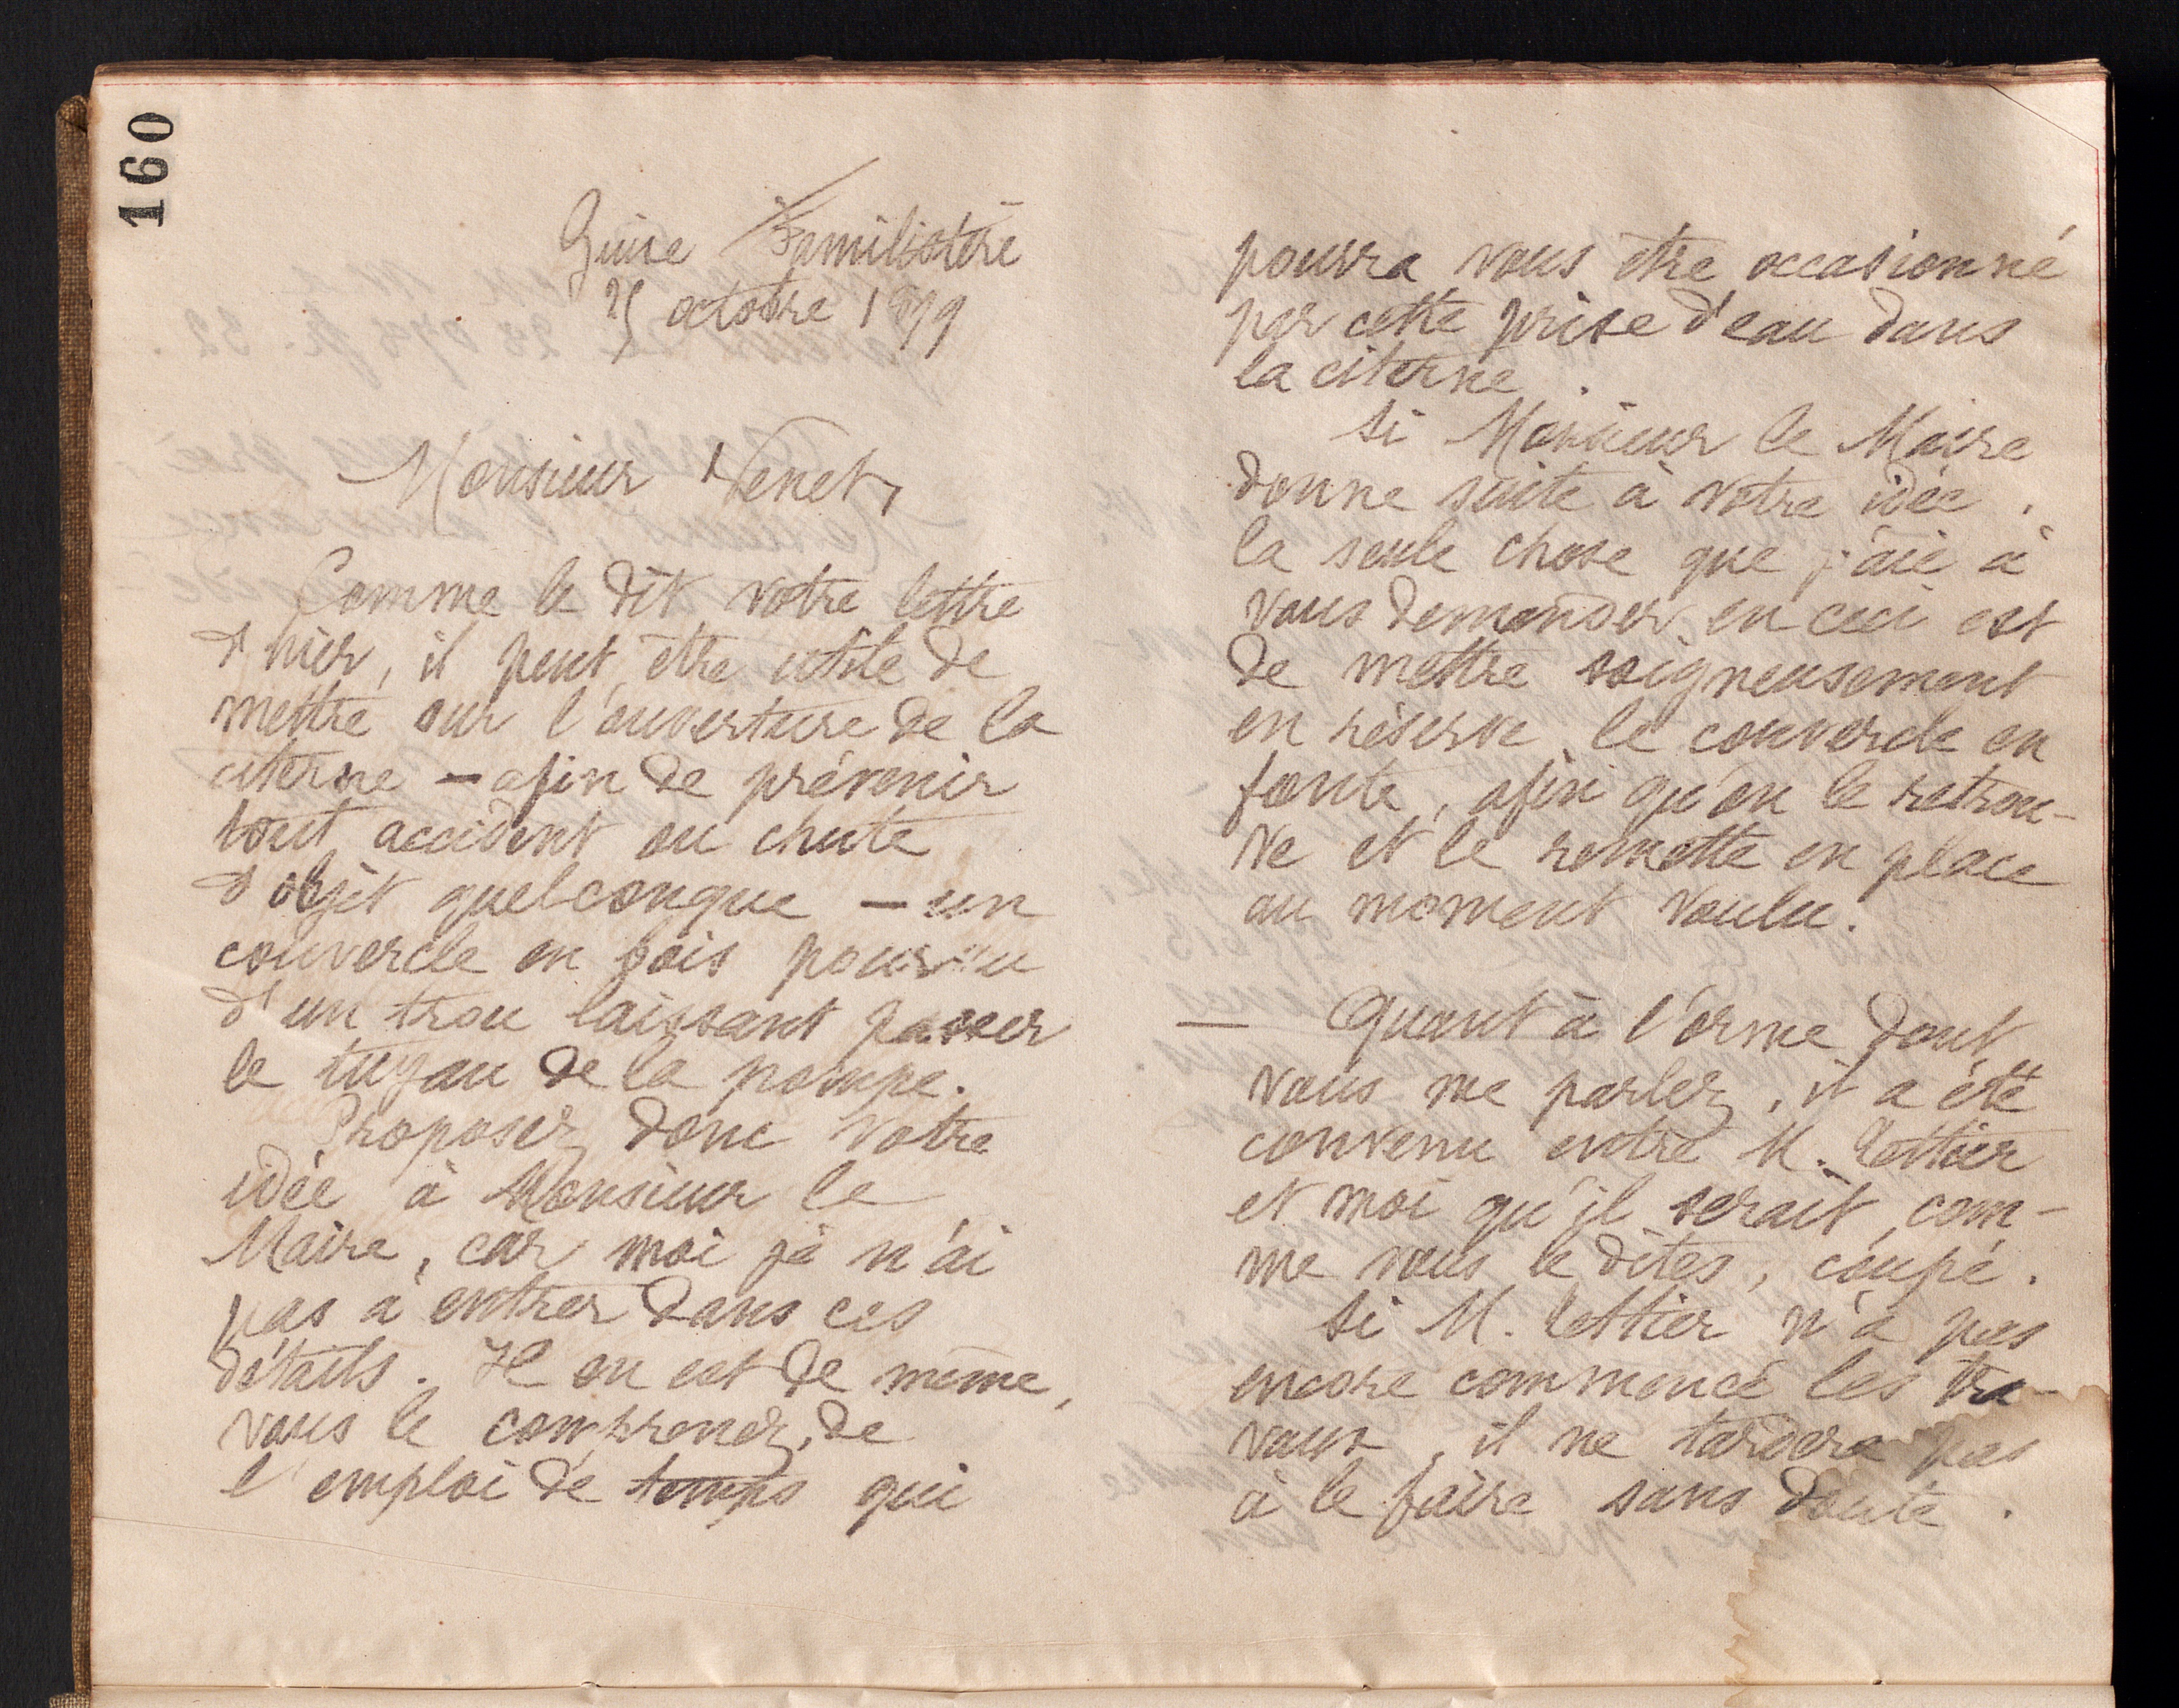 160
Guise Familistère
25 octobre 1899
Monsieur Venet,
Comme le dit votre lettre
d'hier, il peut être utile de
mettre sur l'ouverture de la
citerne — afin de prévenir
tout accident ou chute
d'objet quelconque — un
couvercle en bois pourvu
d'un trou laissant passer
le tuyau de la pompe.
Proposez donc votre
idée à Monsieur le
Maire, car moi je n'ai
pas à entrer dans ces
détails. Il en est de même,
vous le comprenez, de
l'emploi de temps qui
pourra vous être occasionné
par cette prise d'eau dans
la citerne.
Si Monsieur le Maire
donne suite à votre idée,
la seule chose que j'aie à
vous demander en ceci est
de mettre soigneusement
en réserve le couvercle en
fonte, afin qu'on le retrou-
ve et le remette en place
au moment voulu.
— Quant à l'orme dont
vous me parlez, il a été
convenu entre M.
et moi qu'il serait, com-
me vous le dites, coupé.
Si M. n'a pas
encore commencé les tra-
vaux, il ne tardera pas
à le faire sans doute.